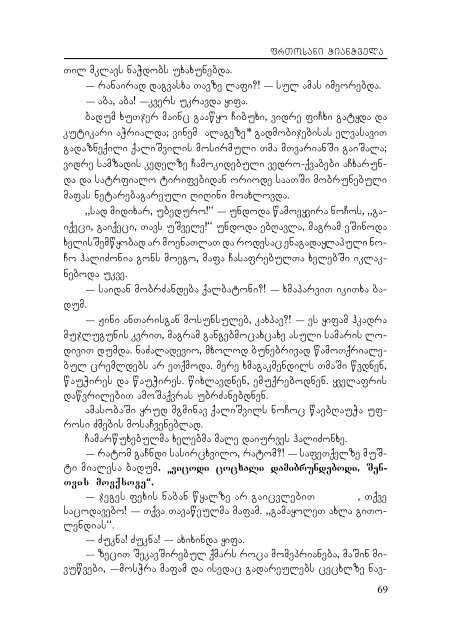 ფრთოსანი ჭიანჭველა
თილ მკლავს ნაჭდობს უხახუნებდა.
— რანაირად დაგვასხა თავზე ლაფი?! — სულ ამას იმეორებდა.
— აბა, აბა! —კვერს უკრავდა ყიფა.
ბადუმ ხუთჯერ მაინც გააწყო ჩიბუხი, ვიდრე ფიჩხი გატყდა და
კუტიკარი აჭრიალდა; ვინემ ალაგეზე* გადმობიჯებისას ელვასავით
გადაზნექილი ქალიშვილის მოსირმული თმა მთვარიანში გაიშალა;
ვიდრე სამზადის კედელზე ჩამოკიდებული ვედრო-ქვაბები აჩხარუნ-
და და სატრფიალო ტირიფებიდან ორიოდე საათში მობრუნებული
მაფას ნეტარებაგარეული ღიღინი მოახლოვდა.
„სად მიდიხარ, უბედურო!“ — უნდოდა წამოეყვირა ნოჩოს, „გა-
იქეცი, გაიქეცი, თავს უშველე!“ უნდოდა ებღავლა, მაგრამ ეშინოდა
ხელისშემწყობად არ მოენათლათ და როდესაც ენაგადაყლაპული ნო-
ჩო ჰალიძონია გონს მოეგო, მაფა ჩასაფრებულთა ხელებში იკლაკ-
ნებოდა უკვე.
— საიდან მობრძანდება ქალბატონი?! — ხმაპარვით იკითხა ბა-
დუმ.
— ჟინი ანთარისგან მოსუნსულებ, კახპავ?! — ეს ყიფამ ჰკადრა
მუჯლუგუნის კვრით, მაგრამ განგებმოცახცახე ასული სამარის ლო-
დივით დუმდა. ნაძალადევიო, მხოლოდ ბუნებრივად წამოთქრიალე-
ბულ ცრემლდებს არ ეთქმოდა. მერე ხმაგაკმენდილს თმაში წვდნენ,
წაუჭირეს და წაუჭირეს. წიხლავდნენ, ემუქრებოდნენ. ყველაფრის
დაწვრილებით ამოშაქვრას უბრძანებდნენ.
ამასობაში ყრუდ მგმინავ ქალიშვილს ნოჩოც წაებღაუჭა უფ-
როსი ძმების მოსაჩვენებლად.
ჩამარწუხებულმა ხელებმა მალე დაიურვეს ჰალიძონხე.
— რატომ გაჩნდი სასირცხვილო, რატომ?! — საფეთქელზე მუშ-
ტი მიალესა ბადუმ. „ვიცოდი ცოცხალი დამიბრუნდებოდი, შენ-
თვის მოვქსოვე“.
— ჯეგეს ფეხის ნაბან წყალზე არ გაიცვლებით , თქვე
საცოდავებო! — თქვა თავაწეულმა მაფამ. „გამაყოლეთ ახლა გითო-
ლენდიას“.
— ძუკნა! ძუკნა! — ახიხინდა ყიფა.
— ზეცით შეკავშირებულ ქმარს როცა მომეპრიანება, მაშინ მი-
ვუწვები, —მოსჭრა მაფამ და ისედაც გადარეულებს ცეცხლზე ნავ-
69